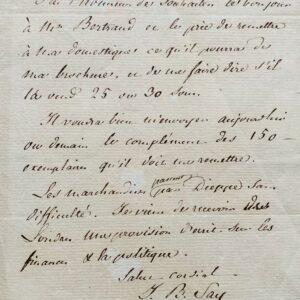 J'ai l'honneur de souhaiter le bonjour
à Mr Bertrand et le prie de remettre
à ma domestique ce qu'il pourra de
ma brochure, et de me faire dire s'il
la vend 25 ou 30 sous.
Il voudra bien m'envoyer aujourd'hui
ou demain le complément des 150
exemplaires qu'il doit me remettre.
Les marchandises passent par Dieppe sans
difficulté. Je viens de recevoir de
Londres une provision d'écrits sur les
finances & la politique.
Salut cordial
J. B. Say